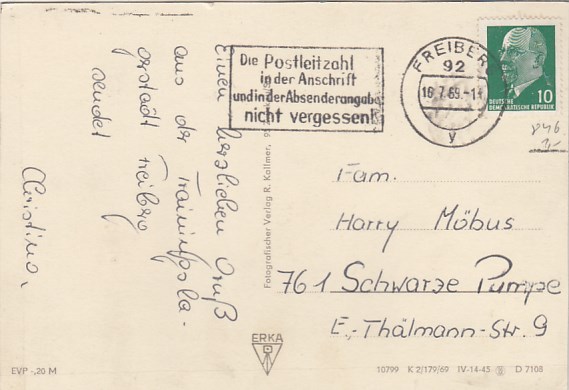 Einen herzlichen Gruß
aus der
sendet
Christina,
Die Postleitzahl
in der Anschrift
und in der Absenderangabe
nicht vergessen!
FREIBERG
92
16.7.69.-11
y
10
DEUTSCHE
DEMOKRATISCHE REPUBLIK
Fotografischer Verlag R. Kallmer,
Fam.
Harry Möbus
761 Schwarze Pumpe
E.-Thälmann-Str. 9
ERKA
EVP -,20 M
10799 K 2/179/69 IV-14-45 D 7108